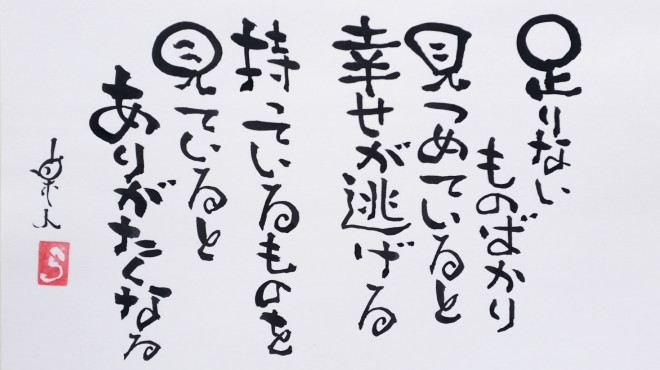 足りない
ものばかり
見つめていると
幸せが逃げる
持っているものを
見ていると
ありがたくなる